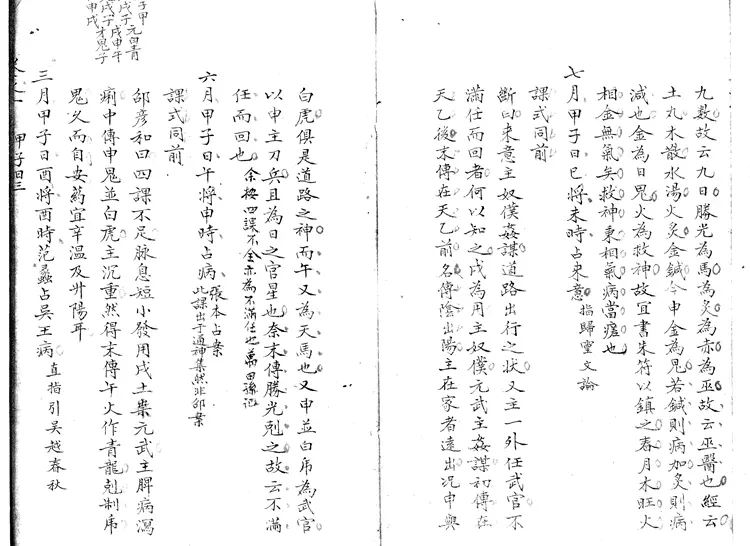 九數故云九日勝光為馬為灸為赤為巫故云巫醫也經云
土丸木散水湯火灸金鍼今申金為鬼若鍼則病加灸則病
減也金為日鬼火為救神故宜書朱符以鎮之春月木旺火
相金無氣矣救神乘相氣病當瘥也
七月甲子日巳將未時占來意 指歸靈文論
課式同前
斷曰來意主奴僕姦謀道路出行之狀又主一外任武官不
滿任而回者何以知之戌為用主奴僕元武主姦謀初傳在
天乙後末傳在天乙前名傳陰出陽主在家者遠出況申與
白虎俱是道路之神而午又為天馬也又申並白虎為武官
以申主刀兵且為日之官星也奈末傳勝光剋之故云不滿
任而回也 余按四課不全亦為不滿任也
六月甲子日午將申時占病 張本占案 此課出于通神集然非邵案
課式同前
邵彥和曰四課不足脉息短小發用戌土乘元武主脾病瀉
痢中傳申鬼並白虎主沉重然得末傳午火作青龍剋制虎
鬼久而自安葯宜辛溫及升陽耳
三月甲子日酉將酉時范蠡占吳王病 直指引吳越春秋
甲子日三